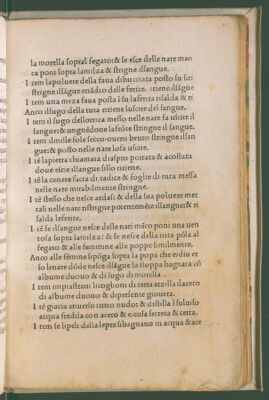 la morella sopral fegato: & se esce delle nare man
ca poni sopra lamilza & strigne ilsangue.
I tem lapoluere della faua dibucciata posto su siti
strigne ilsāgue euādio delle ferite. itiene ilsāgue
I tem una meza faua posta ī su laferita risalda & ti
Anco ilsugo della ruta ritiene luscire del sangue.
I tem il sugo dellortica messo nelle nare fa uscire il
sangue: & ungnēdone lafrōte strīgne il sangue.
I tem ilmille fole secco ouero beuto strīgne ilsan
gue: & posto nelle nare lofa uscire.
I tē lapietra chiamata diaspro portata & acostata
doue escie ilsangue sillo ritiene.
I tē la cenere facta di radice & foglie di ruta messa
nelle nare mirabilmente stringne.
I tē stesso che nesce ardasi & della sua poluere met
tasi nelle nare ristrīgne potentemēte ilsangue & ri
salda leferite.
I tē se ilsangue nesce delle nari māco poni una uen
tosa sopra lamilza: & se nesce della ritta pōsa al
fegato & alle femmine alle poppe similmente.
Anco alle fēmine sipōga sopra la popa che erdiu er
so lenare dōde nesce ilsāgue la stoppa bagnata cō
albume duouo & di sugo di morella.
I tem impiastrati hcoglioni di terra arzilla daceto
di albume duouo & dipresente giouera.
I tē gratta atuerso tutto nudot & distilla ī suluiso
acqua fredda con aceto & e cosa secreta & certa.
I tem se lipeli della lepre sibagnano in acqua & ace